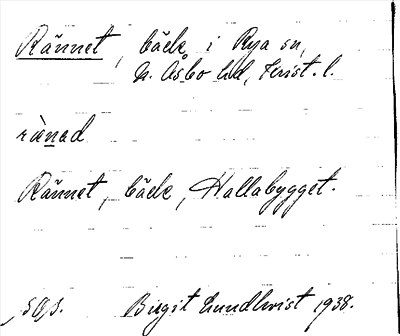 Rännet, bäck i Rya sn,
N. Åsbo hd, Krist. l.
rä̀nad
Rännet, bäck, Hallabygget.
Birgit Lundkvist 1938.